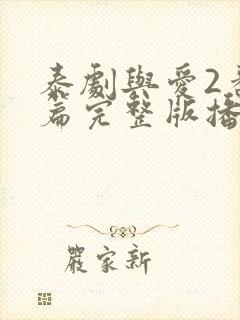 泰劇與愛2番
篇完整版播
嚴家新